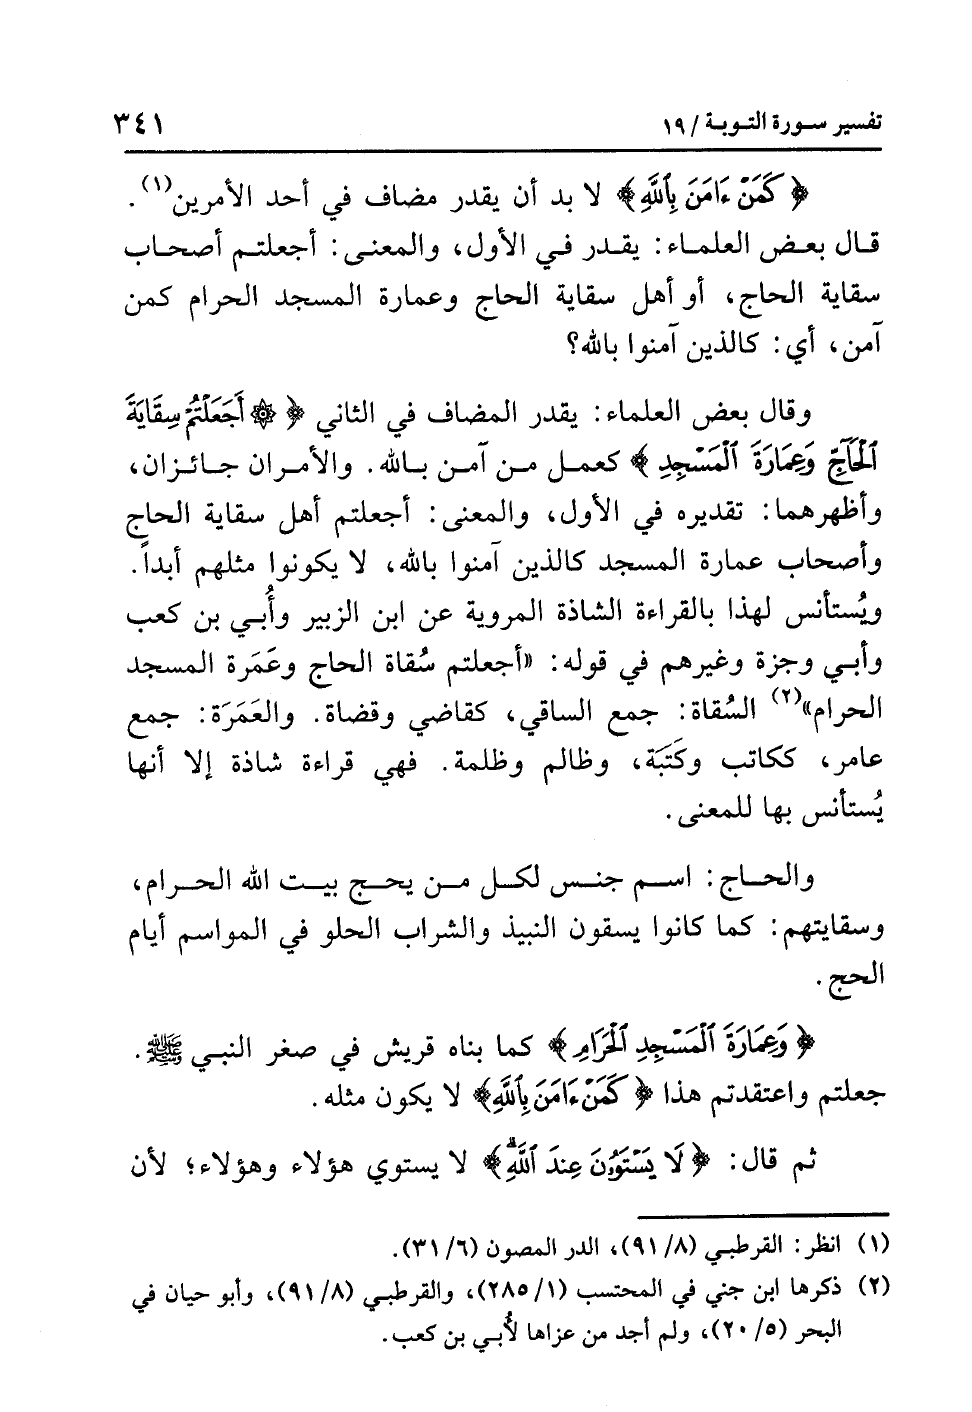 تفسير سورة التوبة / ١٩ ٣٤١
﴿كَمَنْ ءَامَنَ بِٱللَّهِ﴾ لا بد أن يقدر مضاف في أحد الأمرين(١).
قال بعض العلماء: يقدر في الأول، والمعنى: أجعلتم أصحاب
سقاية الحاج، أو أهل سقاية الحاج وعمارة المسجد الحرام كمن
آمن، أي: كالذين آمنوا بالله؟
وقال بعض العلماء: يقدر المضاف في الثاني ﴿۞ أَجَعَلْتُمْ سِقَايَةَ
ٱلْحَآجِّ وَعِمَارَةَ ٱلْمَسْجِدِ﴾ كعمل من آمن بالله. والأمران جائزان،
وأظهرهما: تقديره في الأول، والمعنى: أجعلتم أهل سقاية الحاج
وأصحاب عمارة المسجد كالذين آمنوا بالله، لا يكونوا مثلهم أبداً.
ويُستأنس لهذا بالقراءة الشاذة المروية عن ابن الزبير وأُبي بن كعب
وأبي وجزة وغيرهم في قوله: «أجعلتم سُقاة الحاج وعَمَرة المسجد
الحرام»(٢) السُقاة: جمع الساقي، كقاضي وقضاة. والعَمَرَة: جمع
عامر، ككاتب وكَتَبَة، وظالم وظلمة. فهي قراءة شاذة إلا أنها
يُستأنس بها للمعنى.
والحاج: اسم جنس لكل من يحج بيت الله الحرام،
وسقايتهم: كما كانوا يسقون النبيذ والشراب الحلو في المواسم أيام
الحج.
﴿وَعِمَارَةَ ٱلْمَسْجِدِ ٱلْحَرَامِ﴾ كما بناه قريش في صغر النبي ﷺ.
جعلتم واعتقدتم هذا ﴿كَمَنْ ءَامَنَ بِٱللَّهِ﴾ لا يكون مثله.
ثم قال: ﴿لَا يَسْتَوُۥنَ عِندَ ٱللَّهِۗ﴾ لا يستوي هؤلاء وهؤلاء؛ لأن
(١) انظر: القرطبي (٨/ ٩١)، الدر المصون (٦/ ٣١).
(٢) ذكرها ابن جني في المحتسب (١/ ٢٨٥)، والقرطبي (٨/ ٩١)، وأبو حيان في
البحر (٥/ ٢٠)، ولم أجد من عزاها لأُبي بن كعب.